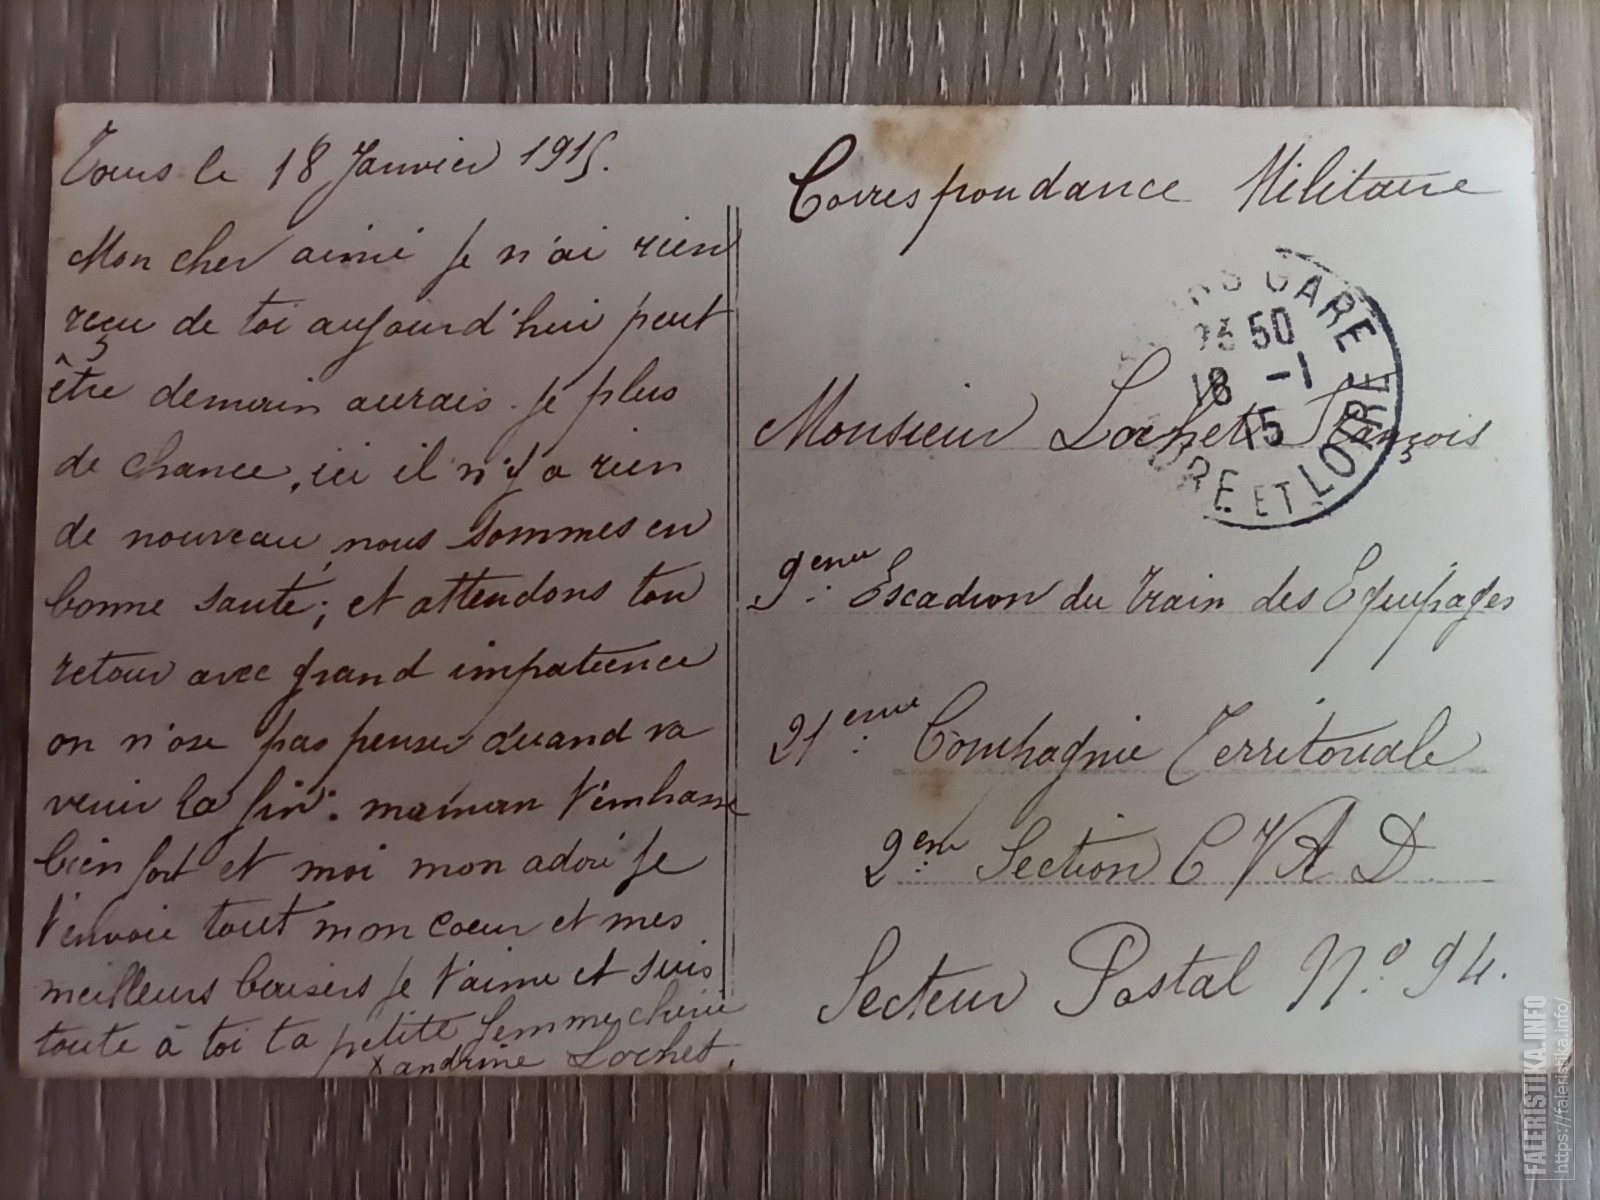 Tours le 18 Janvier 1915.
Mon cher aimé je n'ai rien
reçu de toi aujourd'hui peut
être demain aurais-je plus
de chance, ici il n'y a rien
de nouveau, nous sommes en
bonne santé; et attendons ton
retour avec grand impatience
on n'ose pas penser quand va
venir la fin. maman t'embrasse
bien fort et moi mon adoré je
t'envoie tout mon coeur et mes
meilleurs baisers je t'aime et suis
toute à toi ta petite femme chérie
Xandrine Lochet.
Correspondance Militaire
TOURS GARE
23 50
18 -1
15
INDRE ET LOIRE
Monsieur Lochet François
9eme Escadron du Train des Equipages
21eme Compagnie Territoriale
2eme Section C V A D
Secteur Postal No 94.
FALERISTIKA.INFO
https://faleristika.info/